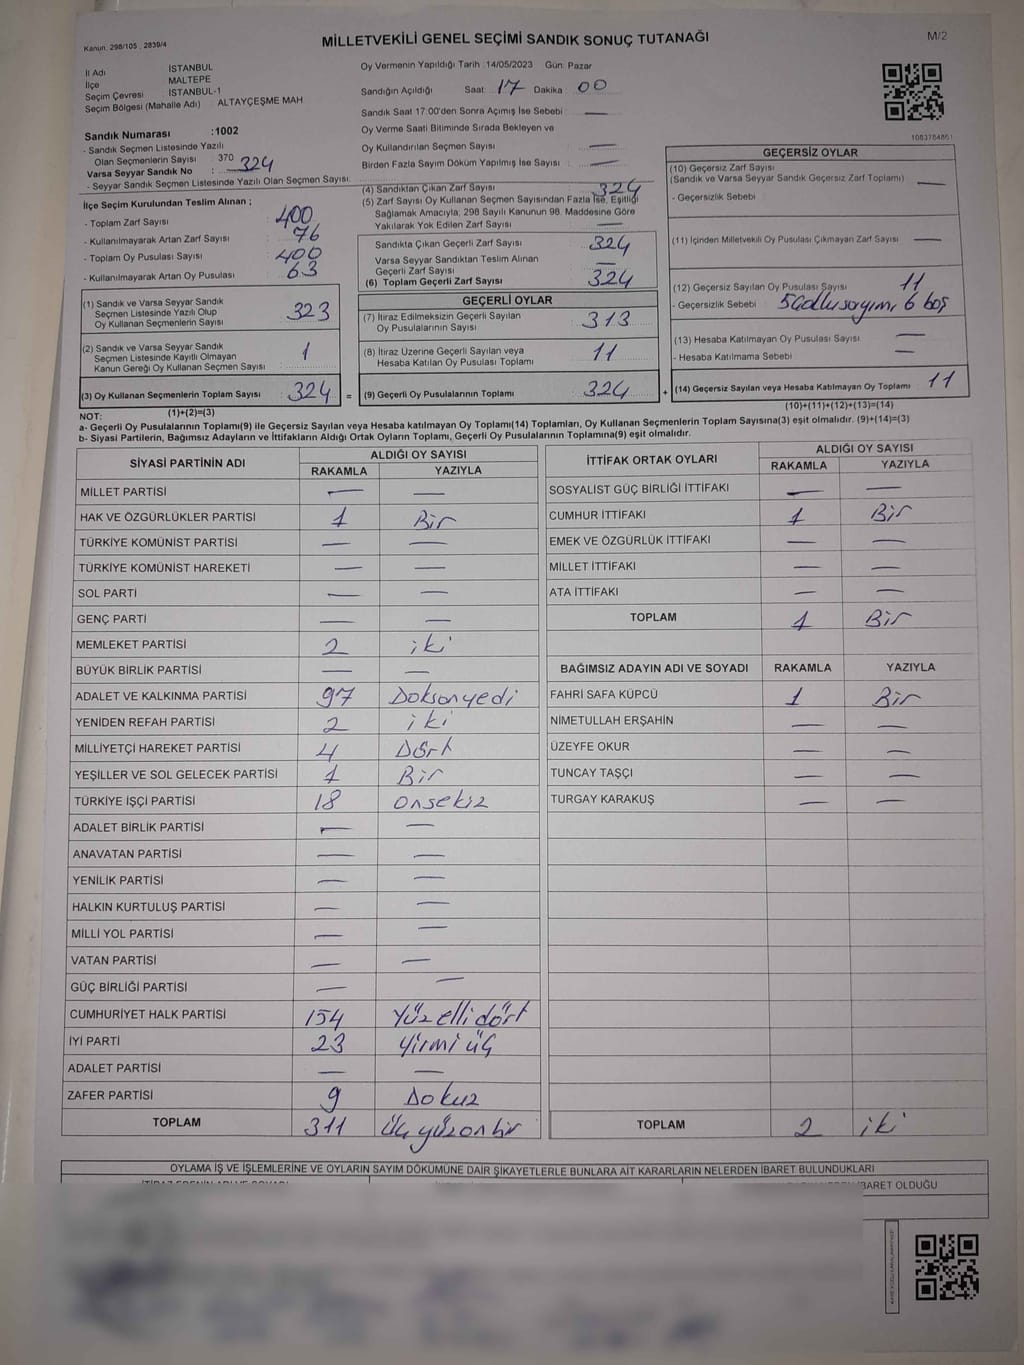 Kanun: 298/105 , 2839/4
MİLLETVEKİLİ GENEL SEÇİMİ SANDIK SONUÇ TUTANAĞI
M/2
İl Adı İSTANBUL
İlçe MALTEPE
Seçim Çevresi : İSTANBUL-1
Seçim Bölgesi (Mahalle Adı) ALTAYÇEŞME MAH
Sandık Numarası :1002
- Sandık Seçmen Listesinde Yazılı
Olan Seçmenlerin Sayısı 370
Varsa Seyyar Sandık No : 324
- Seyyar Sandık Seçmen Listesinde Yazılı Olan Seçmen Sayısı:
İlçe Seçim Kurulundan Teslim Alınan ;
- Toplam Zarf Sayısı : 400
- Kullanılmayarak Artan Zarf Sayısı : 76
- Toplam Oy Pusulası Sayısı : 400
- Kullanılmayarak Artan Oy Pusulası : 63
(1) Sandık ve Varsa Seyyar Sandık
Seçmen Listesinde Yazılı Olup
Oy Kullanan Seçmenlerin Sayısı 323
(2) Sandık ve Varsa Seyyar Sandık
Seçmen Listesinde Kayıtlı Olmayan
Kanun Gereği Oy Kullanan Seçmen Sayısı 1
(3) Oy Kullanan Seçmenlerin Toplam Sayısı : 324 =
(1)+(2)=(3)
Oy Vermenin Yapıldığı Tarih :14/05/2023 Gün: Pazar
Sandığın Açıldığı Saat: 17 Dakika : 00
Sandık Saat 17:00'den Sonra Açımış İse Sebebi : —
Oy Verme Saati Bitiminde Sırada Bekleyen ve
Oy Kullandırılan Seçmen Sayısı : —
Birden Fazla Sayım Döküm Yapılmış İse Sayısı : —
(4) Sandıktan Çıkan Zarf Sayısı : 324
(5) Zarf Sayısı Oy Kullanan Seçmen Sayısından Fazla İse, Eşitliği
Sağlamak Amacıyla; 298 Sayılı Kanunun 98. Maddesine Göre
Yakılarak Yok Edilen Zarf Sayısı : —
Sandıkta Çıkan Geçerli Zarf Sayısı : 324
Varsa Seyyar Sandıktan Teslim Alınan
Geçerli Zarf Sayısı : —
(6) Toplam Geçerli Zarf Sayısı : 324
GEÇERLİ OYLAR
(7) İtiraz Edilmeksizin Geçerli Sayılan
Oy Pusulalarının Sayısı : 313
(8) İtiraz Üzerine Geçerli Sayılan veya
Hesaba Katılan Oy Pusulası Toplamı : 11
(9) Geçerli Oy Pusulalarının Toplamı : 324 +
1083784861
GEÇERSİZ OYLAR
(10) Geçersiz Zarf Sayısı
(Sandık ve Varsa Seyyar Sandık Geçersiz Zarf Toplamı) : —
- Geçersizlik Sebebi :
(11) İçinden Milletvekili Oy Pusulası Çıkmayan Zarf Sayısı : —
(12) Geçersiz Sayılan Oy Pusulası Sayısı : 11
- Geçersizlik Sebebi : 5 6 boş
(13) Hesaba Katılmayan Oy Pusulası Sayısı : —
- Hesaba Katılmama Sebebi : —
(14) Geçersiz Sayılan veya Hesaba Katılmayan Oy Toplamı : 11
(10)+(11)+(12)+(13)=(14)
NOT:
a- Geçerli Oy Pusulalarının Toplamı(9) ile Geçersiz Sayılan veya Hesaba katılmayan Oy Toplamı(14) Toplamları, Oy Kullanan Seçmenlerin Toplam Sayısına(3) eşit olmalıdır. (9)+(14)=(3)
b- Siyasi Partilerin, Bağımsız Adayların ve İttifakların Aldığı Ortak Oyların Toplamı, Geçerli Oy Pusulalarının Toplamına(9) eşit olmalıdır.
SİYASİ PARTİNİN ADI ALDIĞI OY SAYISI
RAKAMLA YAZIYLA
MİLLET PARTİSİ — —
HAK VE ÖZGÜRLÜKLER PARTİSİ 1 Bir
TÜRKİYE KOMÜNİST PARTİSİ — —
TÜRKİYE KOMÜNİST HAREKETİ — —
SOL PARTİ — —
GENÇ PARTİ — —
MEMLEKET PARTİSİ 2 iki
BÜYÜK BİRLİK PARTİSİ — —
ADALET VE KALKINMA PARTİSİ 97 Doksanyedi
YENİDEN REFAH PARTİSİ 2 iki
MİLLİYETÇİ HAREKET PARTİSİ 4 Dört
YEŞİLLER VE SOL GELECEK PARTİSİ 1 Bir
TÜRKİYE İŞÇİ PARTİSİ 18 onsekiz
ADALET BİRLİK PARTİSİ — —
ANAVATAN PARTİSİ — —
YENİLİK PARTİSİ — —
HALKIN KURTULUŞ PARTİSİ — —
MİLLİ YOL PARTİSİ — —
VATAN PARTİSİ — —
GÜÇ BİRLİĞİ PARTİSİ — —
CUMHURİYET HALK PARTİSİ 154 Yüzellidört
İYİ PARTİ 23 yirmi üç
ADALET PARTİSİ — —
ZAFER PARTİSİ 9 Dokuz
TOPLAM 311 üçyüzonbir
İTTİFAK ORTAK OYLARI ALDIĞI OY SAYISI
RAKAMLA YAZIYLA
SOSYALİST GÜÇ BİRLİĞİ İTTİFAKI — —
CUMHUR İTTİFAKI 1 Bir
EMEK VE ÖZGÜRLÜK İTTİFAKI — —
MİLLET İTTİFAKI — —
ATA İTTİFAKI — —
TOPLAM 1 Bir
BAĞIMSIZ ADAYIN ADI VE SOYADI RAKAMLA YAZIYLA
FAHRİ SAFA KÜPCÜ 1 Bir
NİMETULLAH ERŞAHİN — —
ÜZEYFE OKUR — —
TUNCAY TAŞÇI — —
TURGAY KARAKUŞ — —
TOPLAM 2 iki
OYLAMA İŞ VE İŞLEMLERİNE VE OYLARIN SAYIM DÖKÜMÜNE DAİR ŞİKAYETLERLE BUNLARA AİT KARARLARIN NELERDEN İBARET BULUNDUKLARI
İBARET OLDUĞU